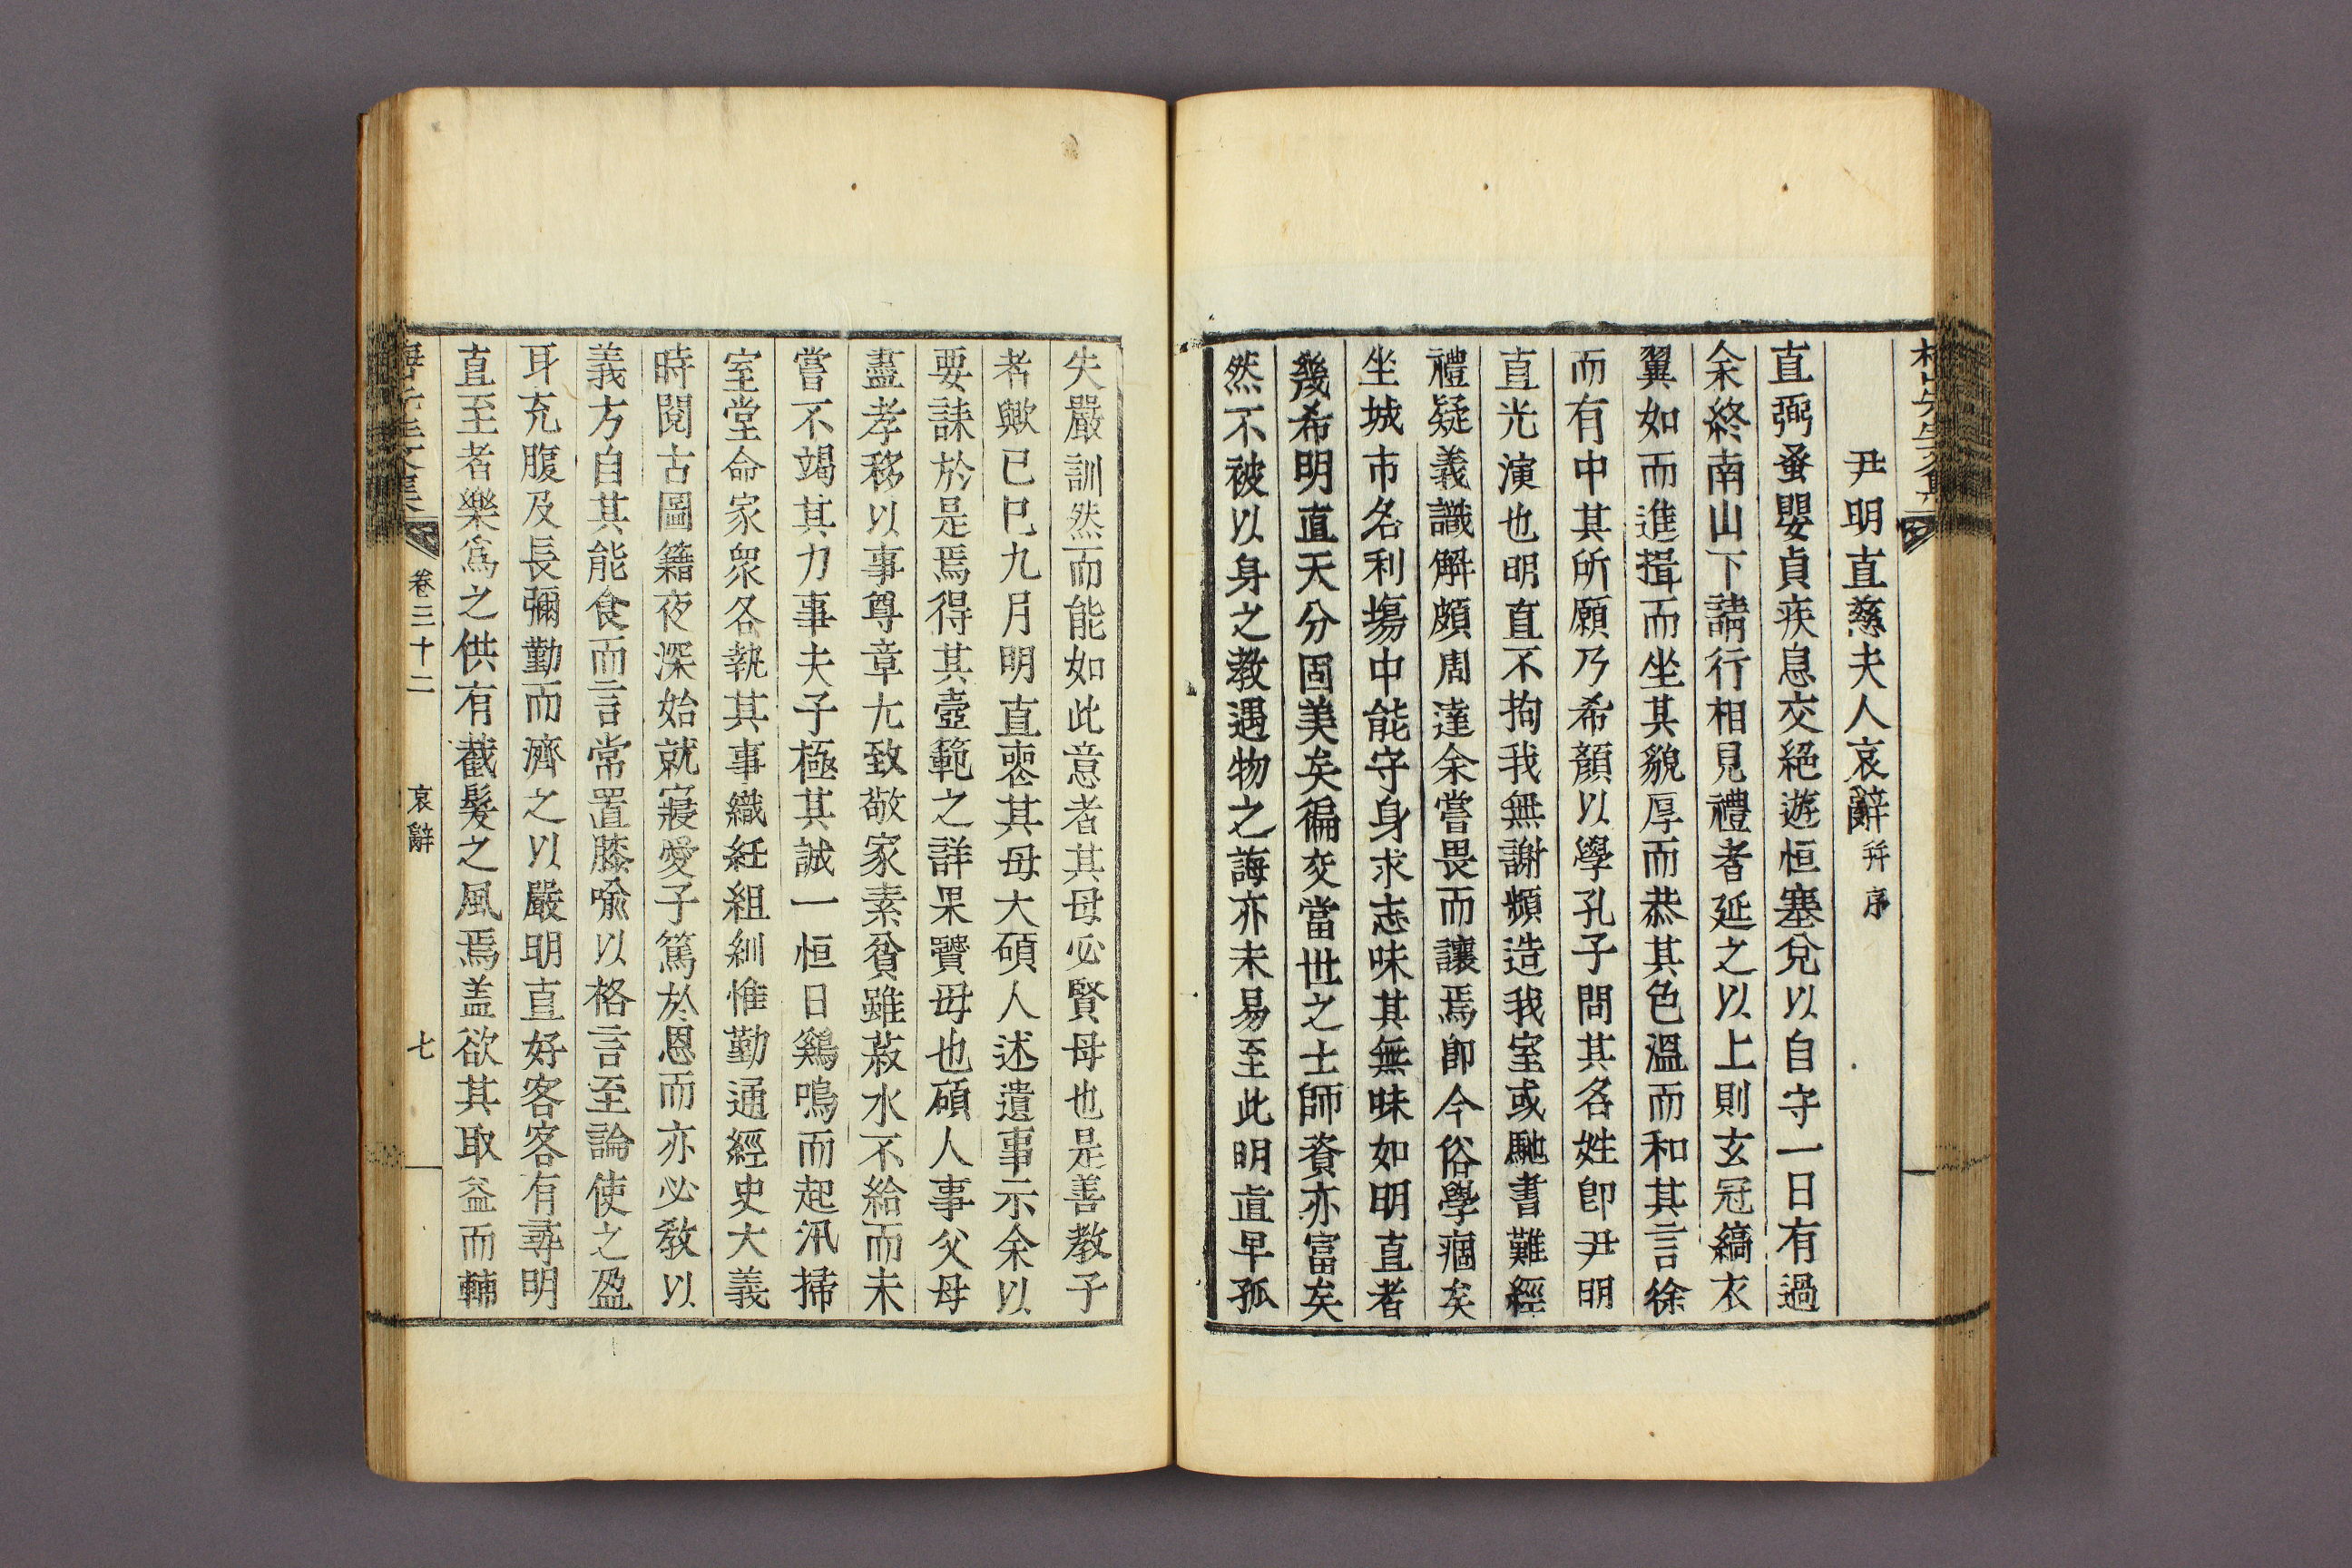 先生文集
尹明直慈夫人哀辭幷序
直弼蚤嬰貞疾息交絕遊恒塞兌以自守一日有過
余終南山下請行相見禮者延之以上則玄冠縞衣
翼如而進揖而坐其貌厚而恭其色溫而和其言徐
而有中其所願乃希顏以學孔子問其名姓卽尹明
直光演也明直不拘我無謝頻造我室或馳書難經
禮疑義識解頗周達余嘗畏而讓焉卽今俗學痼矣
坐城市名利塲中能守身求志味其無味如明直者
幾希明直天分固美矣徧交當世之士師資亦富矣
然不被以身之教遇物之誨亦未易至此明直早孤
失嚴訓然而能如此意者其母必賢母也是善教子
者歟已巳九月明直喪其母大碩人述遺事示余以
要誄於是焉得其壼範之詳果賢母也碩人事父母
盡孝移以事尊章尤致敬家素貧雖菽水不給而未
嘗不竭其力事夫子極其誠一恒日鷄鳴而起汛掃
室堂命家衆各執其事織紝組紃惟勤通經史大義
時閱古圖籍夜深始就寢愛子篤於恩而亦必敎以
義方自其能食而言常置膝喩以格言至論使之盈
耳充腹及長彌勤而濟之以嚴明直好客客有尋明
直至者樂爲之供有截髮之風焉盖欲其取益而輔
卷三十二
哀辭
七